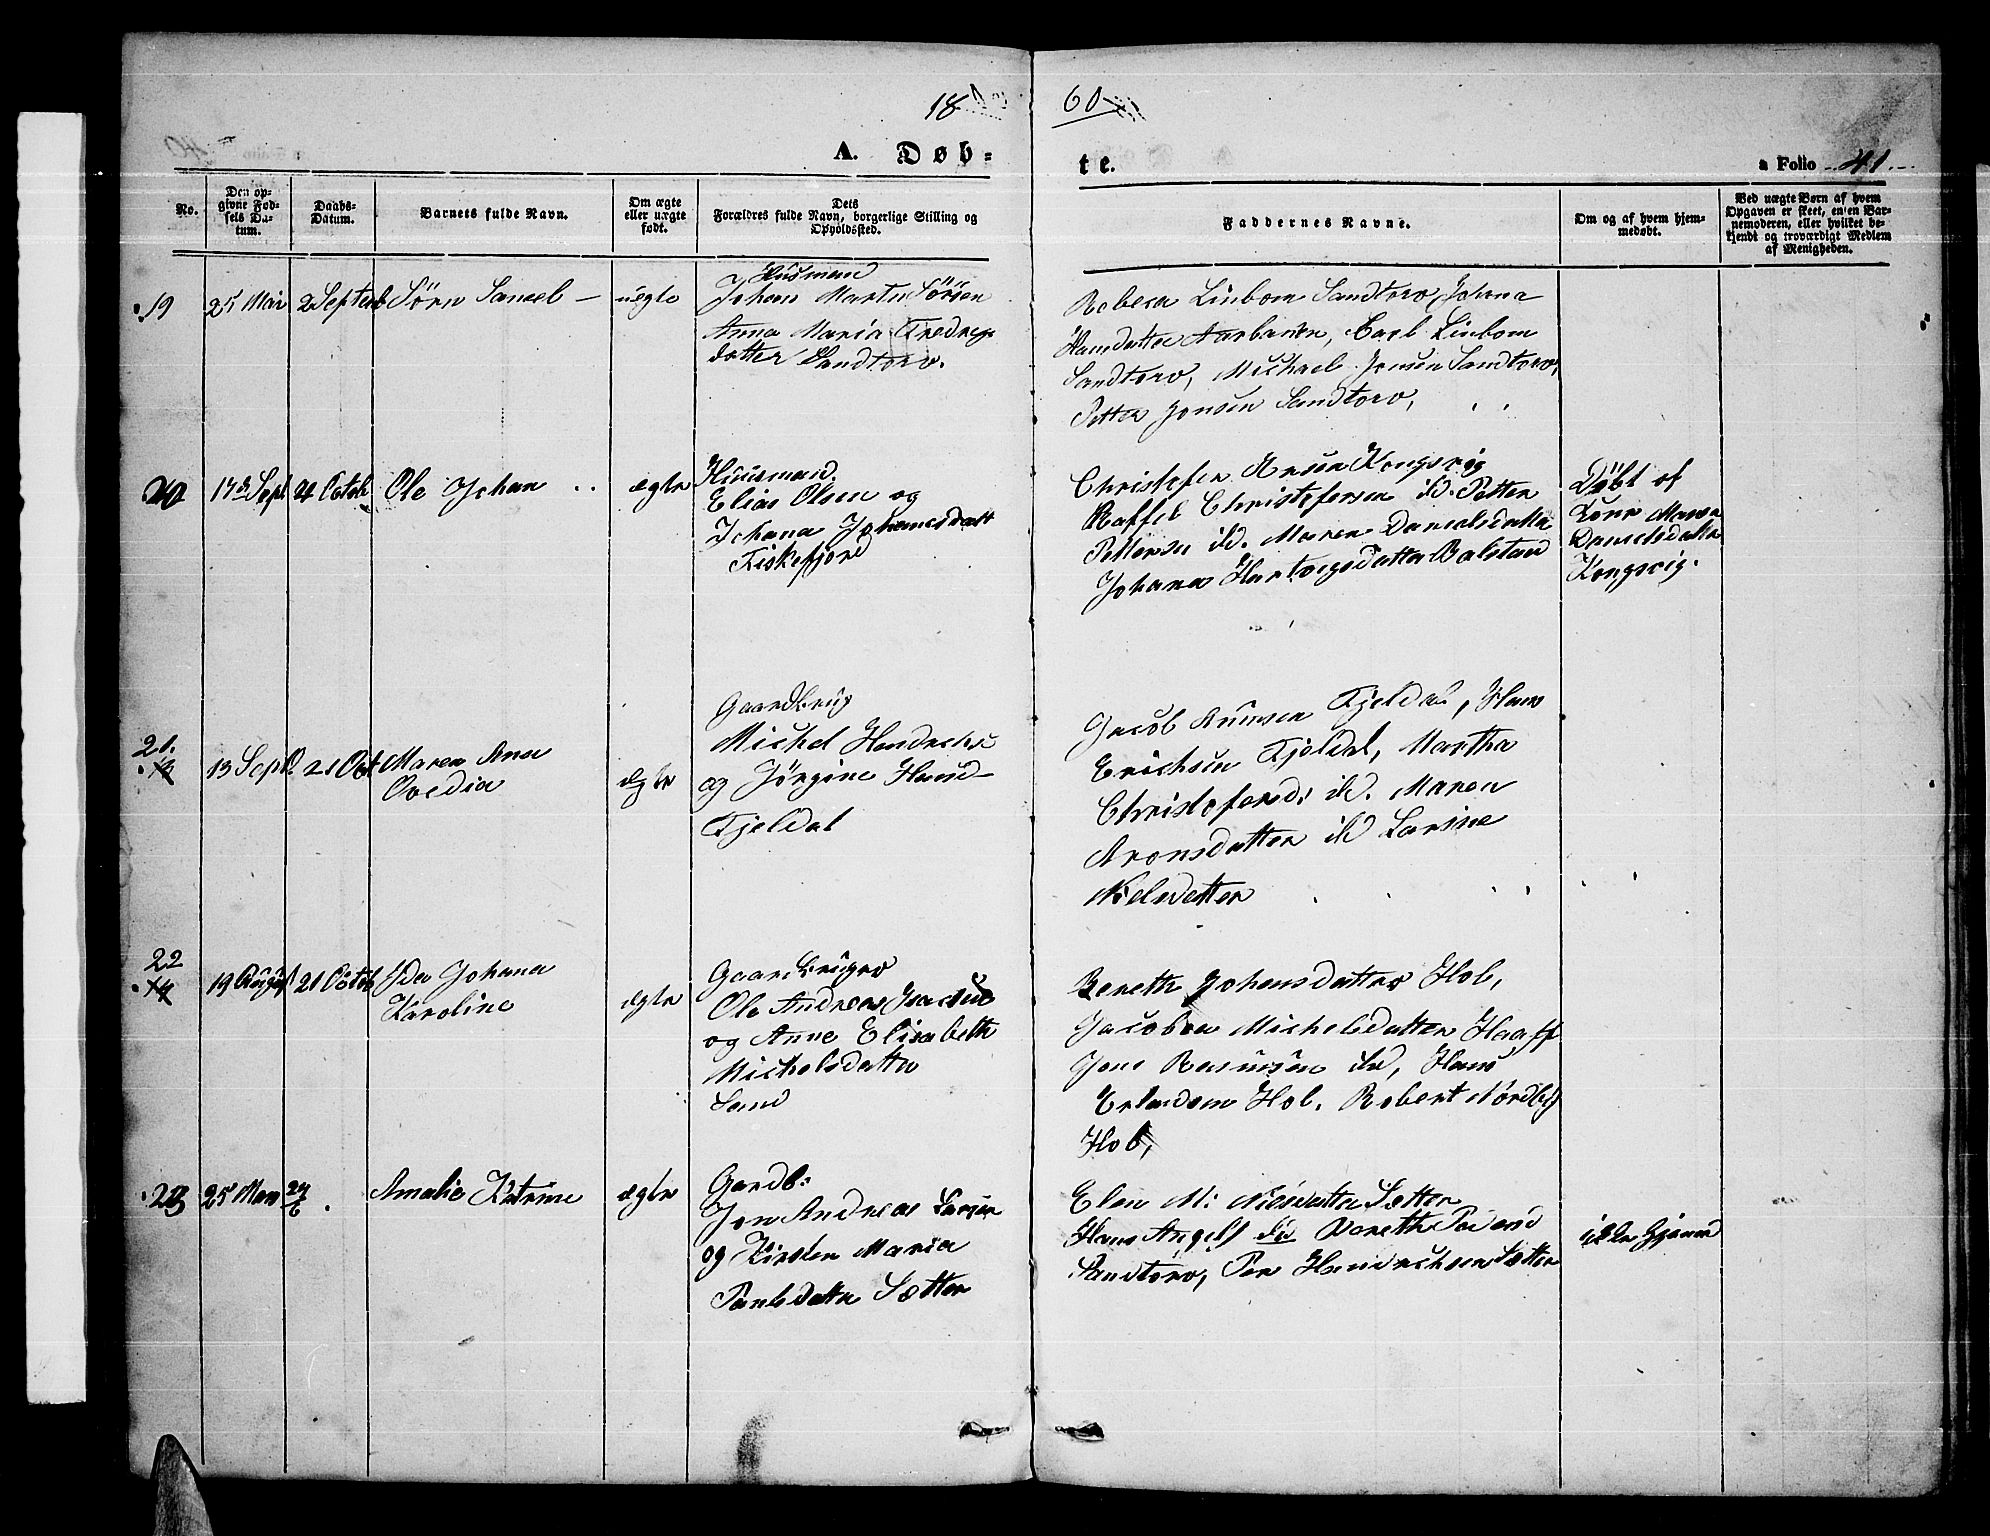 18 60
A. Døb-te.
a Folio 41.
No.
Den op-
givne Fød-
sels Da-
tum.
Daabs-
Datum.
Barnets fulde Navn.
Om ægte
eller uægte
født.
Dets
Forældres fulde Navn, borgerlige Stilling og
Opholdssted.
Faddernes Navne.
Om og af hvem hjem-
medøbt.
Ved uægte Børn af hvem
Opgaven er skeet, enten Bar-
nemoderen, eller hvilket be-
kjendt og troværdigt Medlem
af Menigheden.
19
25 Mai
2 Septeb
Sörn
uegte
Husman
Johan Martn Sörsen
Anna Maria Fredregs
dotter Sandtorv.
Rebeca Linbom Sandtorv Johana
Hansdatter Aarbaren, Carl Linbom
Sandtorv, Michael Jensen Sandtorv,
Petter Jonsen Sandtorv,
20
17de Sept
21 Octob
Ole Johan
ægte
Huusmand
Elias Olsen og
Johana Johanesdatt
Fiskefjord
Christofer Arsen Kongsvig
Raffel Christofersen ild. Petter
Pettersen ild. Maren Danielsdatter
Johana Hartvigsdatter Balstad
Döbt af
Kone Maren
Danielsdatter
Kongsvig.
21.
13 Sept.
21 Oct
Maren Ana
Ovedia
ægte
Gaardbrug
Michel Hendrichs
og Jörgine Hansd
Fjeldal
Jacob Fjeldal, Hans
Erichsen Fjeldal, Martha
Christofersd. ild. Maren
Aronsdatter ild Larsine
Nielsdatter
22
19 August
21 Octob
Ida Johana
Karoline
ægte
Gaardbruger
Ole Andreas Isacsen
og Anne Elisabeth
Michelsdatter
Sand
Bereth Johansdatter Hol,
Jacobea Michelsdatter Haaff
Jens Rasmusen ild, Hans
Erlandsen Hol, Robert Nordby
Hol,
23
25 Mars
24/6
Amalie Katrine
ægte
Gardb:
Jon Andreas Larsen
og Kirsten Maria
Paulsdatter Sætter
Elen M: Nilsdatter Sætter
Hans Angell ild Bereth
Sandtorv, Per Hendrichsen Sætter
ikke Hjemd